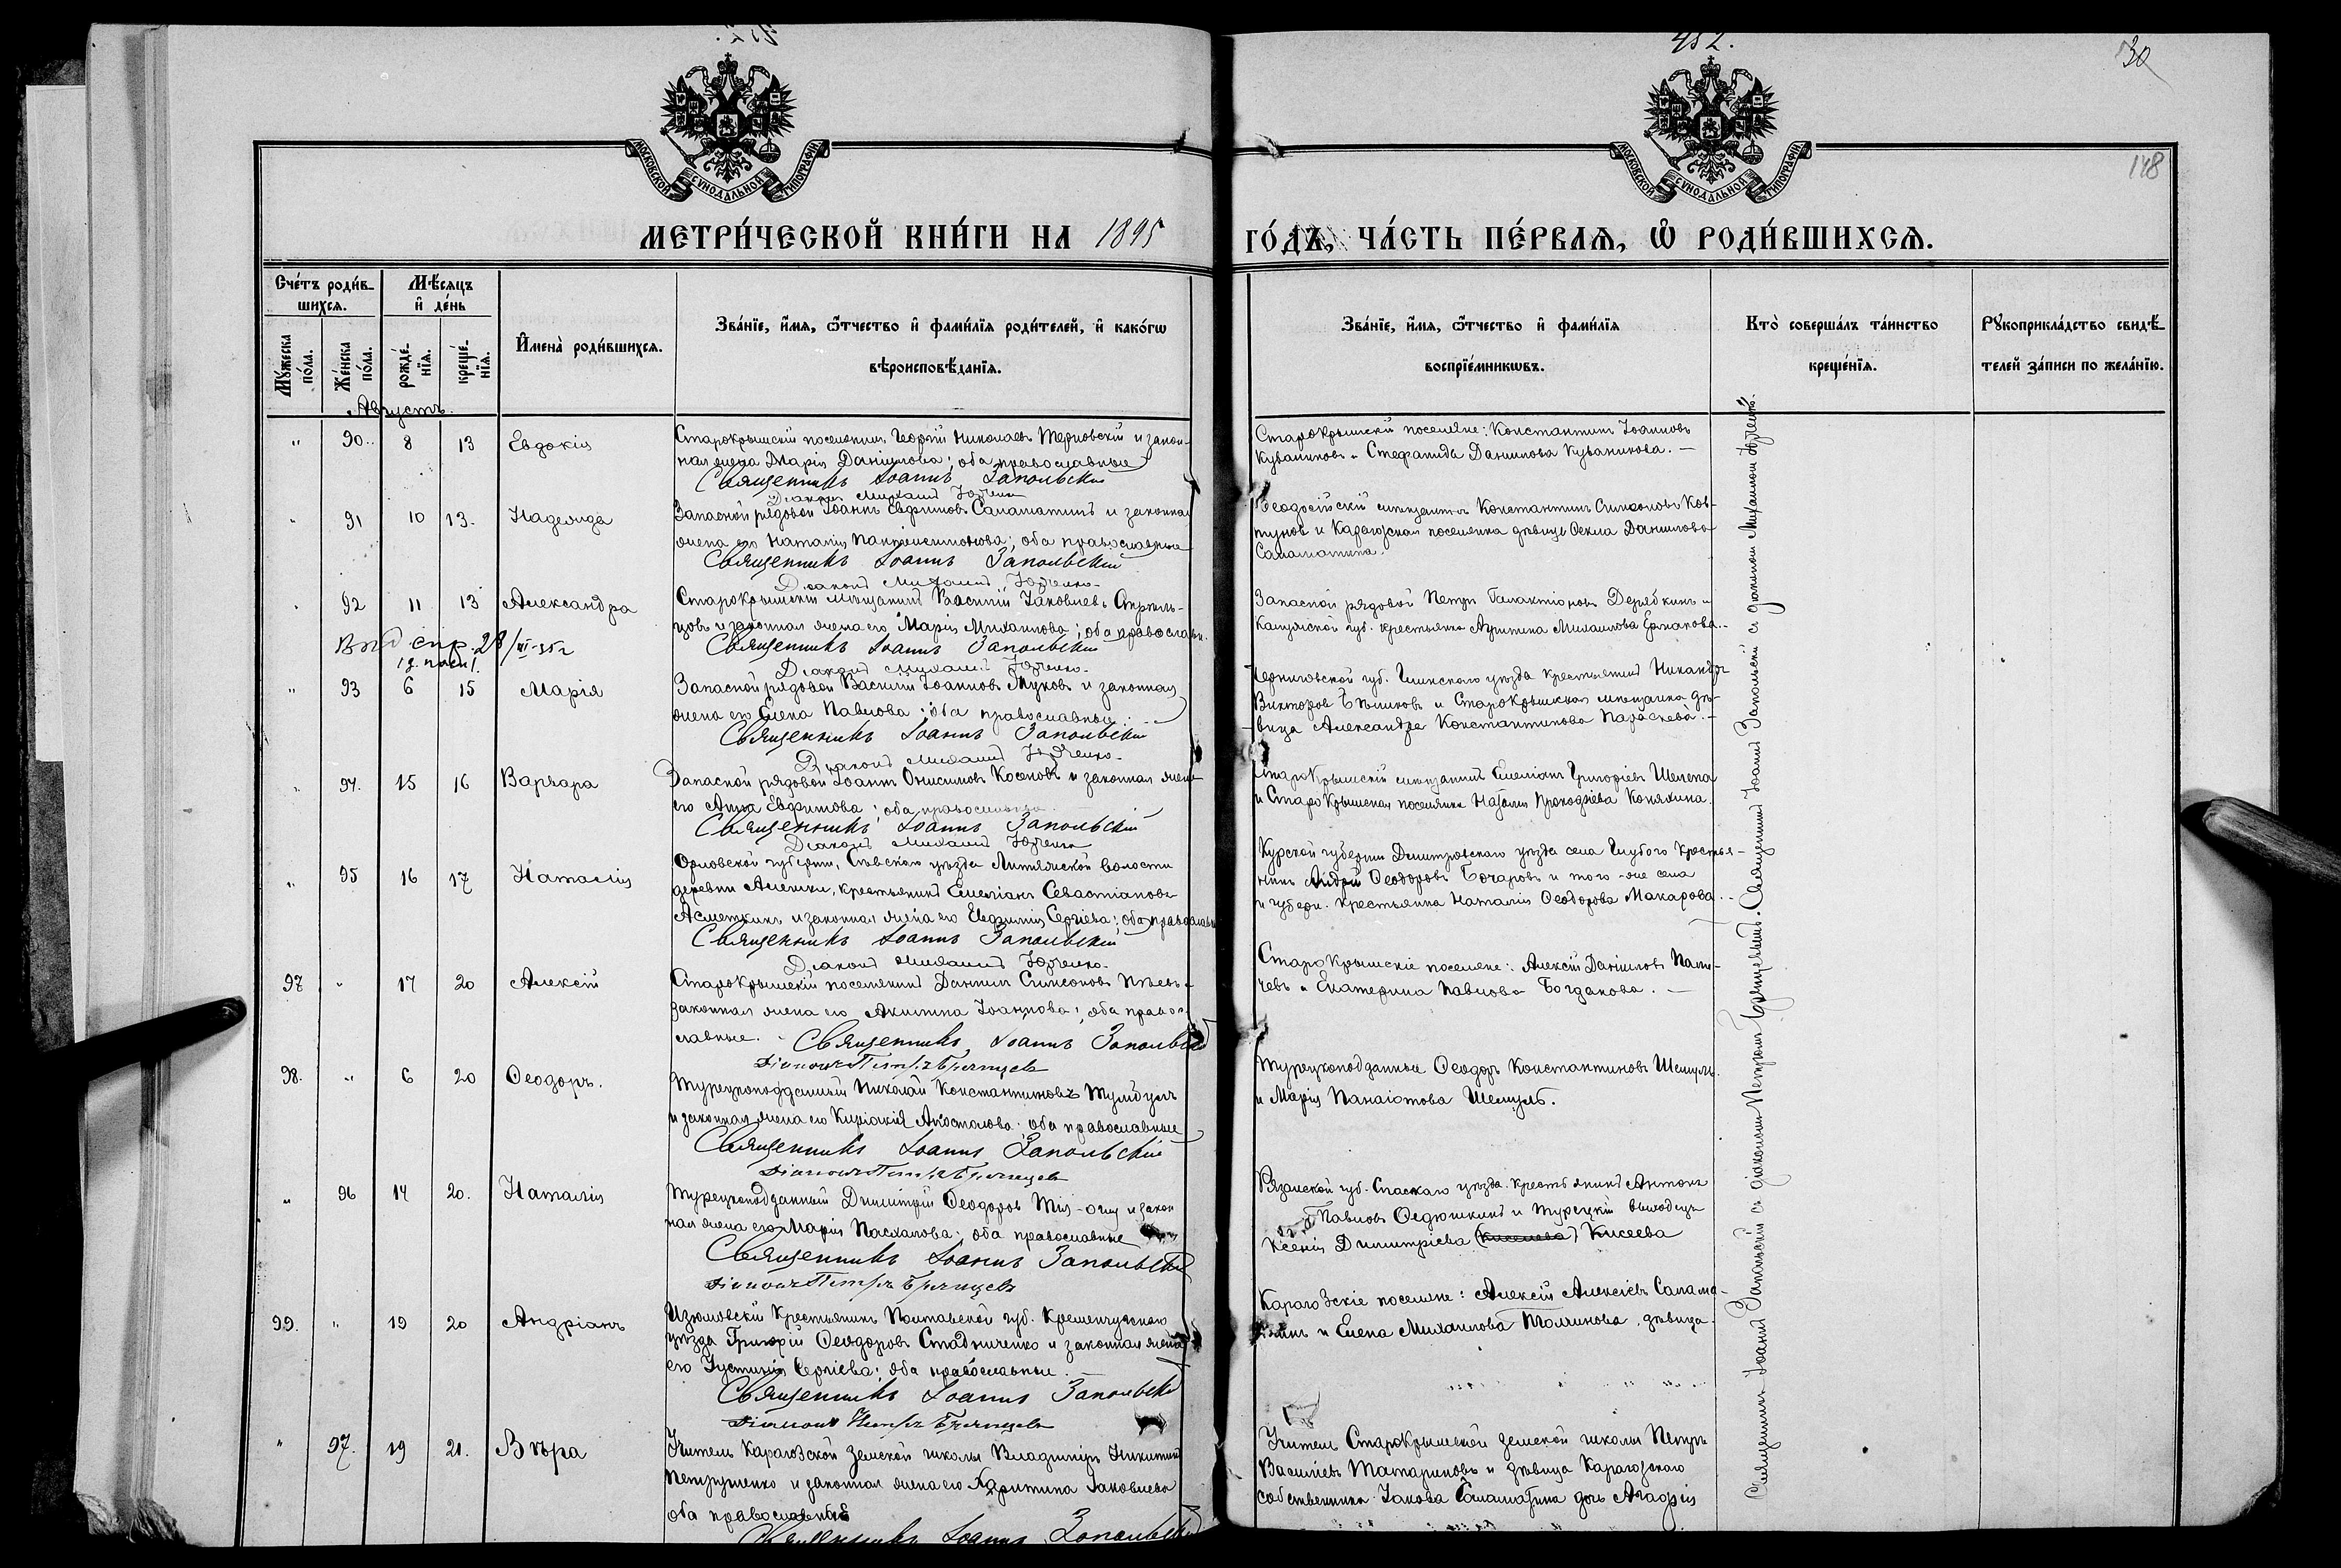 452.
30
148
МОСКОВСКОЙ СѴНОДАЛЬНОЙ ТИПОГРАФІИ
МОСКОВСКОЙ СѴНОДАЛЬНОЙ ТИПОГРАФІИ
МЕТРИ́ЧЕСКОЙ КНИ́ГИ НА 1895 ГО́ДЪ, ЧА́СТЬ ПЕ́РВАЯ, Ѽ РОДИ́ВШИХСЯ.
Сче́тъ роди́в-
шихся.
Мꙋ́жеска по́ла.
Же́нска по́ла.
Мѣ́сяцъ
и҆ де́нь
рожде́нїя.
креще́нїя.
И҆мена̀ роди́вшихся.
Зва́нїе, и҆́мя, ѻ҆́тчество и҆ фами́лїя роди́телей, и҆ како́гѡ
вѣроисповѣ́данїя.
Зва́нїе, и҆́мя, ѻ҆́тчество и҆ фами́лїя
воспрїе́мникѡвъ.
Кто̀ соверша́лъ та́инство
креще́нїя.
Рꙋкоприкла́дство свидѣ́-
телей за́писи по жела́нїю.
Августъ.
" 90. 8 13 Евдокія
Старокрымскій поселянинъ Георгій Николаевъ Терновскій и закон-
ная жена Марія Даніилова; оба православные
Священникъ Іоаннъ Запольскій
Діаконъ Михаилъ Юрченко
Старокрымскіе поселяне: Константинъ Іоанновъ
Куваниковъ и Стефанида Даниилова Куваникова. —
" 91 10 13. Надежда
Запасной рядовой Іоаннъ Евфимовъ Саламатинъ и законная
жена его Наталія; оба православные
Священникъ Іоаннъ Запольскій
Діаконъ Михаилъ Юрченко
Ѳеодосійскій мещанинъ Константинъ Симеоновъ Ков-
туновъ и Карагозская поселянка дѣвица Ѳекла Даниилова
Саламатина.
" 92 11 13 Александра
Старокрымскій мѣщанинъ Василій Іаковлевъ Стрѣль-
цовъ и законная жена его Марія Михаилова; оба православн.
Священникъ Іоаннъ Запольскій
Діаконъ Михаилъ Юрченко
Запасной рядовой Петръ Галактіоновъ Дерябкинъ и
Калужской губ. крестьянка Михаилова Ермакова.
спр. 28/III-35г
" 93 6 15 Марія
Запасной рядовой Василій Іоанновъ Жуковъ и законная
жена его Елена Павлова; оба православные
Священникъ Іоаннъ Запольскій
Діаконъ Михаилъ Юрченко
Черниговской губ. уѣзда крестьянинъ Никандръ
Викторовъ и Старокрымская мѣщанка дѣ-
вица Александра Константинова Параскева. —
" 94. 15 16 Варвара
Запасной рядовой Іоаннъ Онисимовъ Косеновъ и законная жена
его Анна Евфимова; оба православные
Священникъ Іоаннъ Запольскій
Діаконъ Михаилъ Юрченко
Старокрымскій мѣщанинъ Емеліанъ Григоріевъ Шелепа
и Старокрымская поселянка Наталія Прокофіева Коняхина.
" 95 16 17 Наталія
Орловской губерніи, Сѣвскаго уѣзда волости
деревни Алешки, крестьянинъ Емеліанъ Севастіановъ
и законная жена его Евфимія Сергіева; оба православн
Священникъ Іоаннъ Запольскій
Діаконъ Михаилъ Юрченко
Курской губерніи Дмитровскаго уѣзда села Глубого крестья-
нинъ Андрей Ѳеодоровъ Бочаровъ и того-же села
и губерн. крестьянка Наталія Ѳеодорова Макарова.
97 " 17 20 Алексій
Старокрымскій поселянинъ Даніилъ Симеоновъ и
законная жена его Акилина Іоаннова; оба право-
славные. Священникъ Іоаннъ Запольскій
Діаконъ Петръ Брянцевъ
Старокрымскіе поселяне: Алексій Даніиловъ
и Екатерина Павлова Богданова. —
98. " 6 20 Ѳеодоръ.
Турецкоподданный Николай Константиновъ
и законная жена его Киріакія Апостолова оба православные
Священникъ Іоаннъ Запольскій
Діаконъ Петръ Брянцевъ
Турецкоподданные Ѳеодоръ Константиновъ
и Марія Панаіотова.
" 96 14 20. Наталія
Турецкоподданный Димитрій Ѳеодоровъ и закон
ная жена его Марія Пасхалова; оба православные
Священникъ Іоаннъ Запольскій
Діаконъ Петръ Брянцевъ
Рязанской губ. Спаскаго уѣзда крестьянинъ Антонъ
Павловъ Ѳедюшкинъ и турецкій выходецъ
Ксенія Димитріева (Киселева) Кисеева
99. " 19 20 Андріанъ
Крестьянинъ Полтавской губ. Кременчугскаго
уѣзда Григорій Ѳеодоровъ Стадниченко и законная жена
его Іустинія Сергіева; оба православные.
Священникъ Іоаннъ Запольскій
Діаконъ Петръ Брянцевъ
Карагозскіе поселяне: Алексій Алексіевъ Салама-
тинъ и Елена Михаилова, дѣвица.
" 97. 19 21. Вѣра
Учитель Карагозской земской школы Владиміръ Никитинъ
Петрушенко и законная жена его Харитина Іаковлева
оба православные
Священникъ Іоаннъ Запольскій
Учитель Старокрымской земской школы Петръ
Василіевъ Татариновъ и дѣвица Карагозскаго
собственника Іакова Саламатина дочь Агафія
Священникъ Іоаннъ Запольскій съ діакономъ Петромъ Брянцевымъ. Священникъ Іоаннъ Запольскій съ діакономъ Михаиломъ Юрченко.